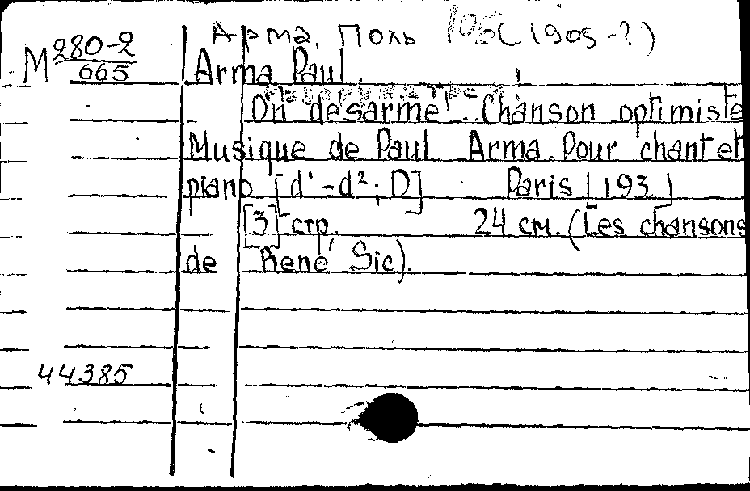 Арма, Поль (1905-?)
M 280-2
665
Arma Paul
On désarme! Chanson optimiste
Musique de Paul Arma. Pour chant et
piano [d¹-d²; D] Paris [193 ]
[3] стр. 24 см. (Les chansons
de René Sic).
44385